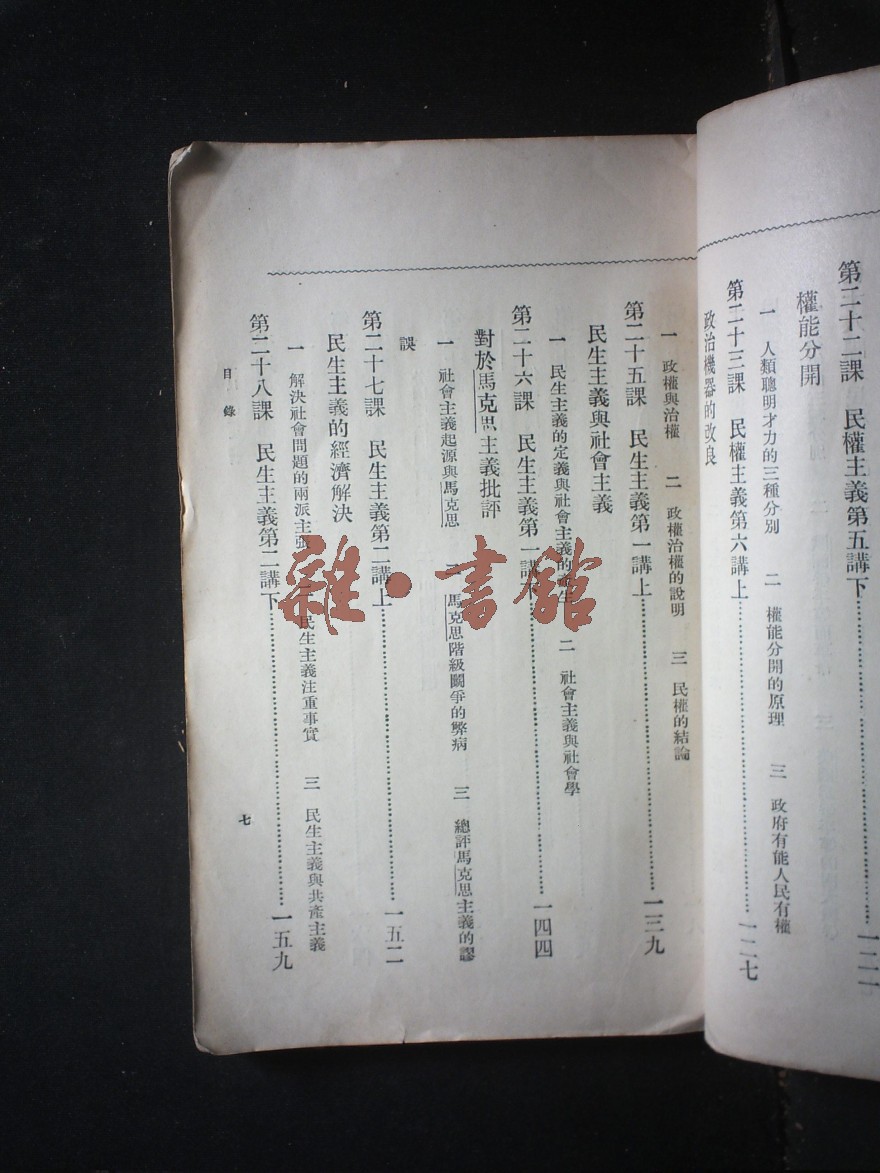 第二十二課　民權主義第五講下……一二一
權能分開
一　人類聰明才力的三種分別　二　權能分開的原理　三　政府有能人民有權
第二十三課　民權主義第六講上……一二七
政治機器的改良
一　政權與治權　二　政權治權的說明　三　民權的結論
第二十五課　民生主義第一講上……一三九
民生主義與社會主義
一　民生主義的定義與社會主義的產生　二　社會主義與社會學
第二十六課　民生主義第一講……一四四
對於馬克思主義批評
一　社會主義起源與馬克思　二　馬克思階級鬭爭的弊病　三　總評馬克思主義的謬
誤
第二十七課　民生主義第二講上……一五二
民生主義的經濟解決
一　解決社會問題的兩派主張　二　民生主義注重事實　三　民生主義與共產主義
第二十八課　民生主義第二講下……一五九
目錄
七
雜·書館